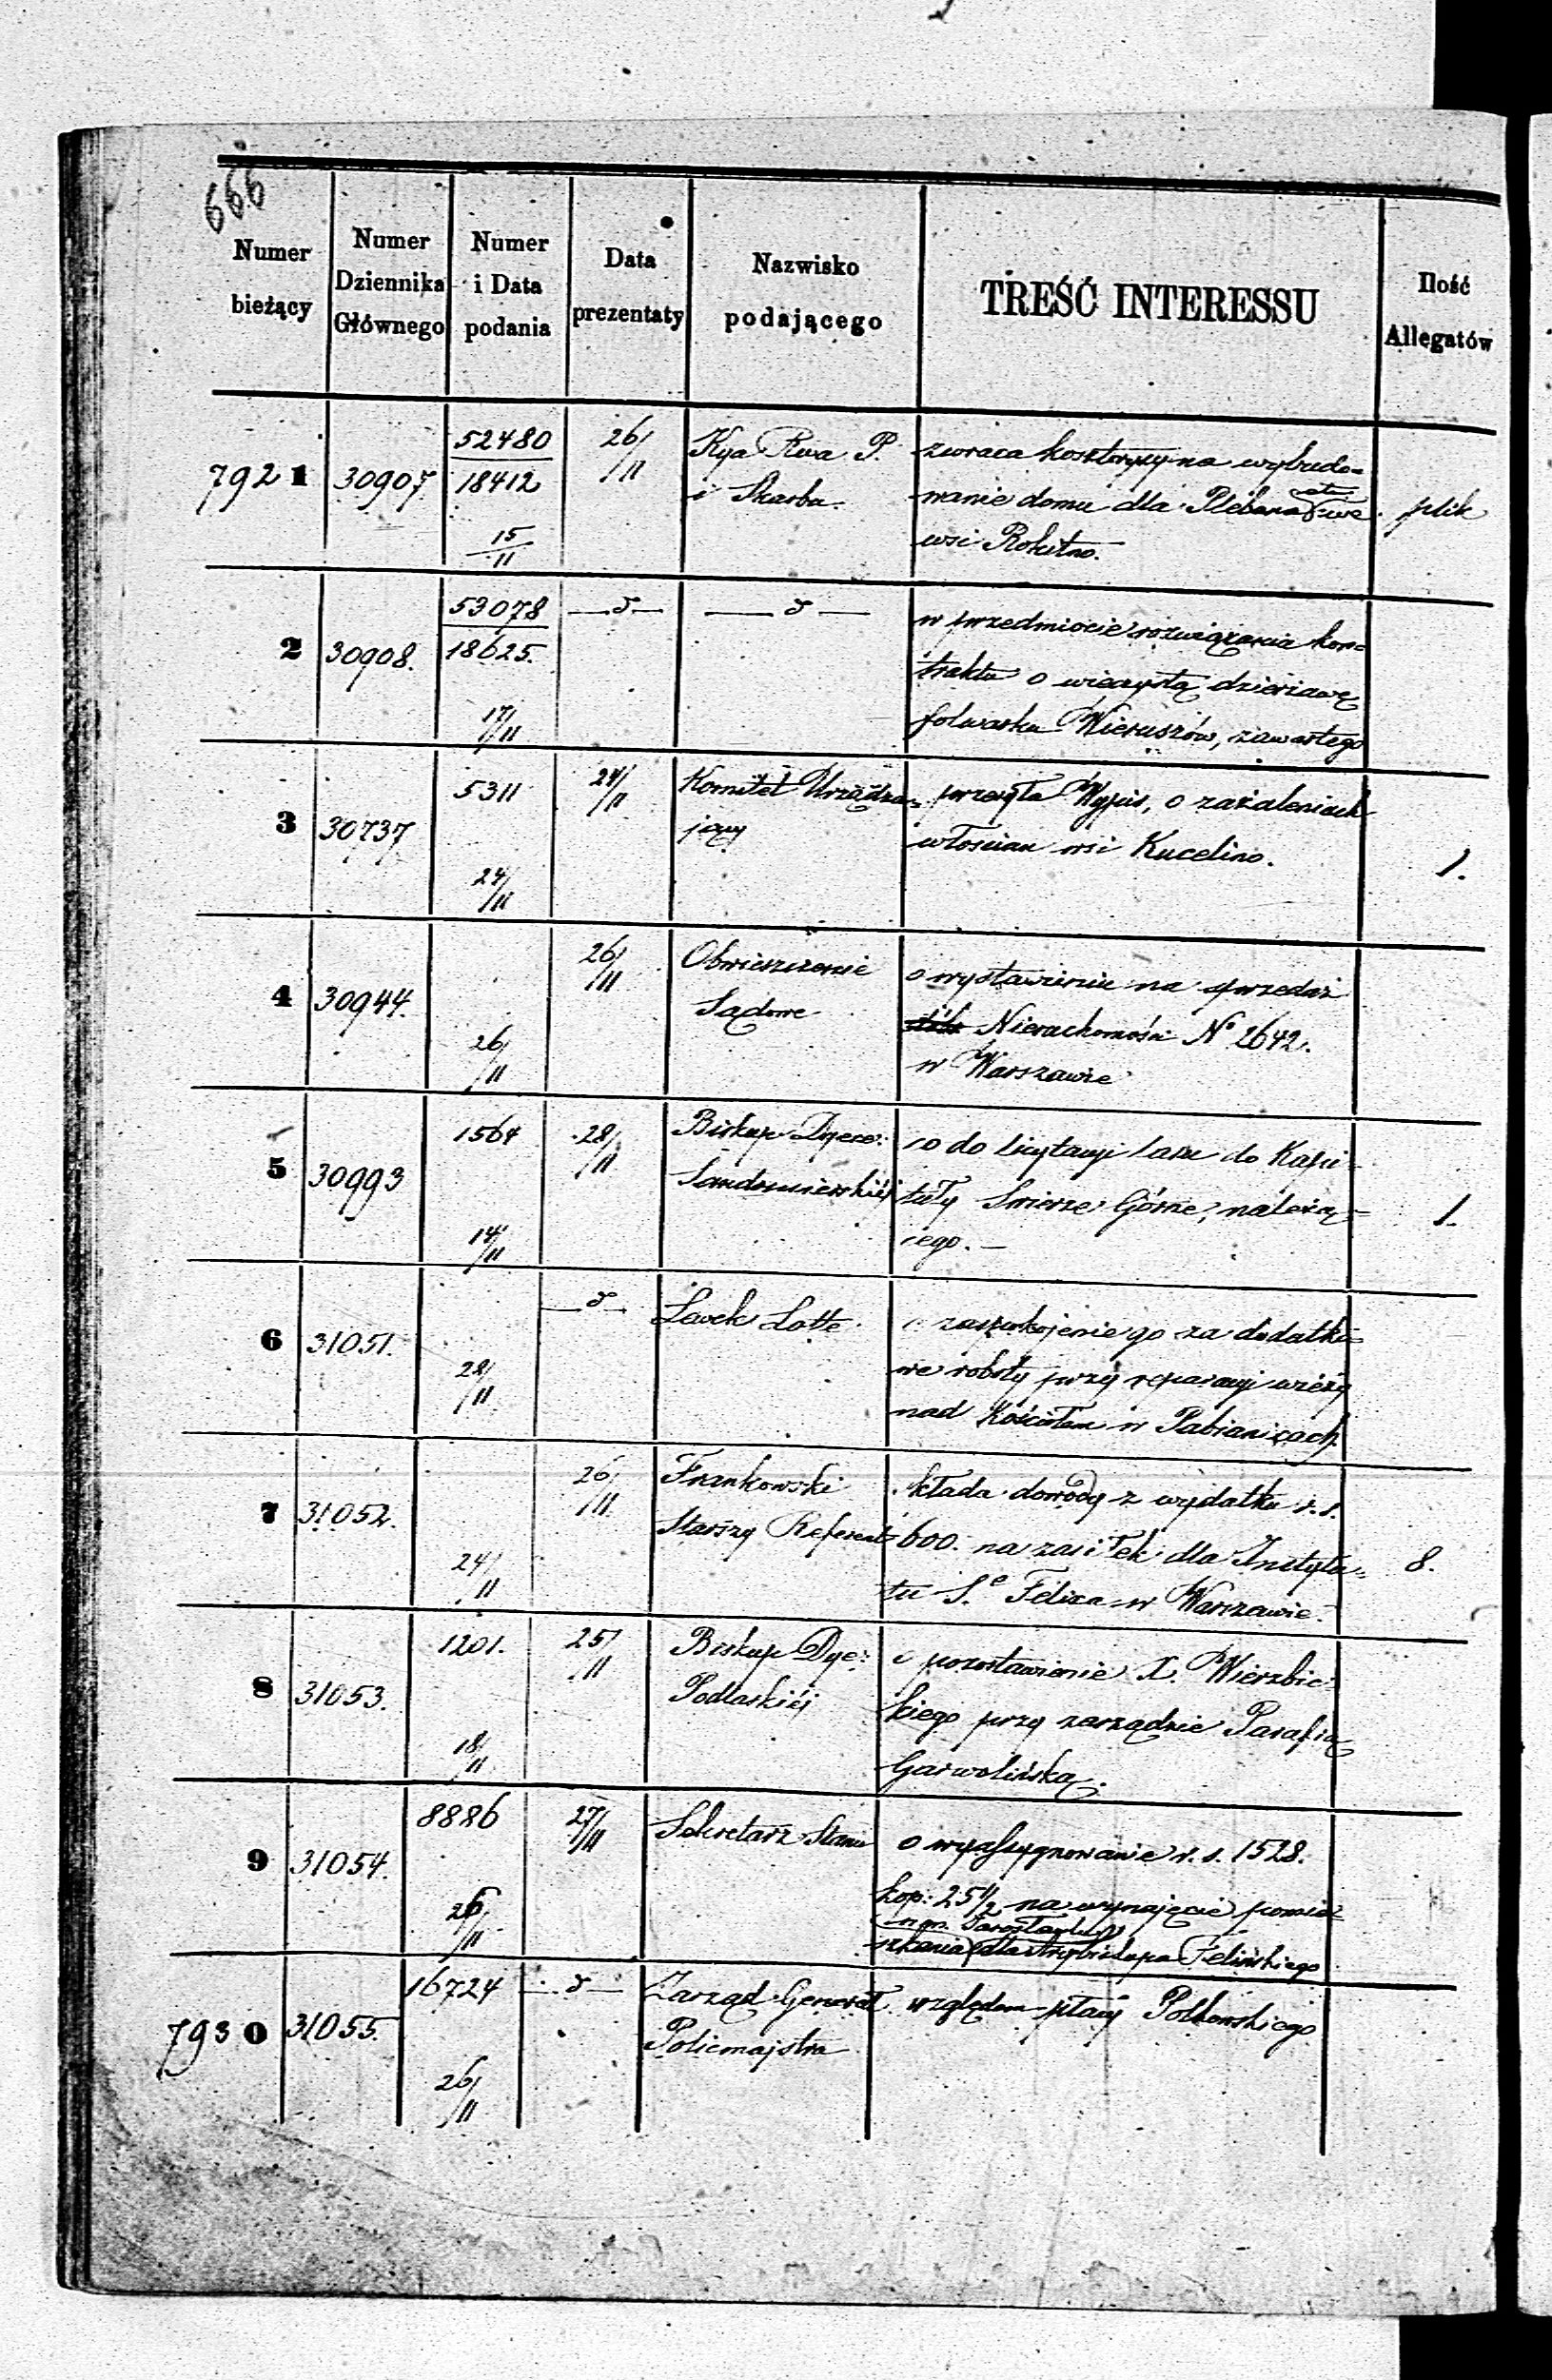 666
Numer bieżący
Numer Dziennika Głównego
Numer i Data podania
Data prezentaty
Nazwisko podającego
TREŚĆ INTERESSU
Ilość Allegatów
7921
30907
52480
18412
15/11
26/11
Kya Rwa P.
i Skarbu.
zwraca kosztorysy na wybudo=
wanie domu dla Plebana we
wsi Rokitno.
plik
2
30908.
53078
18625.
17/11
—d—
—d—
w przedmiocie rozwiązania kon=
traktu o wieczystą dzierżawę
folwarku Wieruszów, zawartego
3
30737
5311
24/11
24/11
Komitet Urządza=
jący
przesyła Wypis, o zażaleniach
włościan wsi Kucelino.
1.
4
30944.
26/11
26/11
Obwieszczenie
Sądowe
o wystawieniu na sprzedaż
Nieruchomości No 2642.
w Warszawie
5
30993
1564
14/11
28/11
Biskup Dyece:
Sandomierskiéj
co do licytacyi lasu do Kapi=
tuły Swierże Górne, należą=
cego. —
1.
6
31051.
28/11
—d—
Lewek Lotte
o zaspokojenie go za dodatko=
we roboty przy reparacyi wieży
nad Kościołem w Pabianicach.
7
31052.
24/11
26/11
Frankowski
Starszy Referent
składa dowody z wydatku r. s.
600. na zasiłek dla Instytu=
tu S.o Felixa w Warszawie.
8.
8
31053.
1201.
18/11
25/11
Biskup Dye:
Podlaskiéj
o pozostawienie X. Wierzbic=
kiego przy zarządzie Parafią
Garwolińską.
9
31054.
8886
26/11
27/11
Sekretarz Stanu
o wyassygnowanie r. s. 1528.
kop: 25 1/2 na wynajęcie pomie=
w m. Jarosławlu
szkania dla Arcybiskupa Felińskiego
7930
31055.
16724
26/11
—d—
Zarząd Generał
Policmajstra
względem płacy Polkowskiego